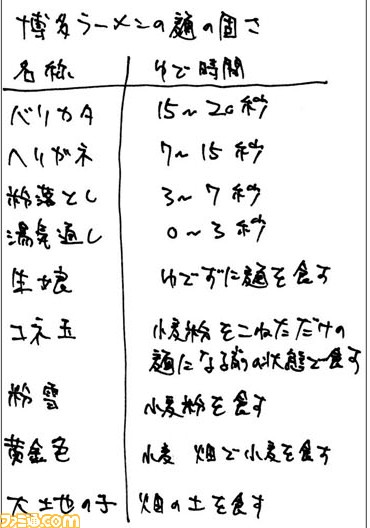 博多ラーメンの麺の固さ
名称 ゆで時間
バリカタ 15〜20秒
ハリガネ 7〜15秒
粉落とし 3〜7秒
湯気通し 0〜3秒
生娘 ゆでずに麺を食す
コネ玉 小麦粉をこねただけの
麺になる前の状態で食す
粉雪 小麦粉を食す
黄金色 小麦畑で小麦を食す
大土地の子 畑の土を食す
ファミ通.com